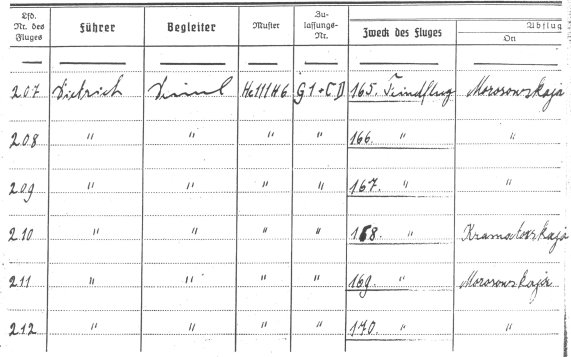 Lfd. Nr. des Fluges Führer Begleiter Muster Zulassungs-Nr. Zweck des Fluges Abflug Ort
207 Dietrich He111H6 G1+CD 165. Feindflug Morosowskaja
208 " " " " 166. " "
209 " " " " 167. " "
210 " " " " 168. " Kramatorskaja
211 " " " " 169. " Morosowskaja
212 " " " " 170. " "